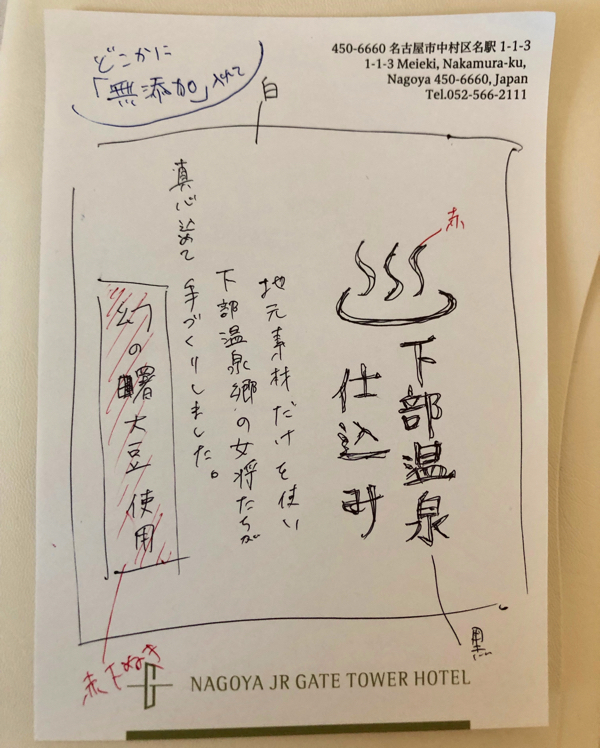 450-6660 名古屋市中村区名駅 1-1-3
1-1-3 Meieki, Nakamura-ku,
Nagoya 450-6660, Japan
Tel.052-566-2111
どこかに
「無添加」入れて
白
赤
下部温泉
仕込み
地元素材だけを使い
下部温泉郷の女将たちが
真心込めて手づくりしました。
幻の曙大豆使用
赤下ぬき
黒
NAGOYA JR GATE TOWER HOTEL